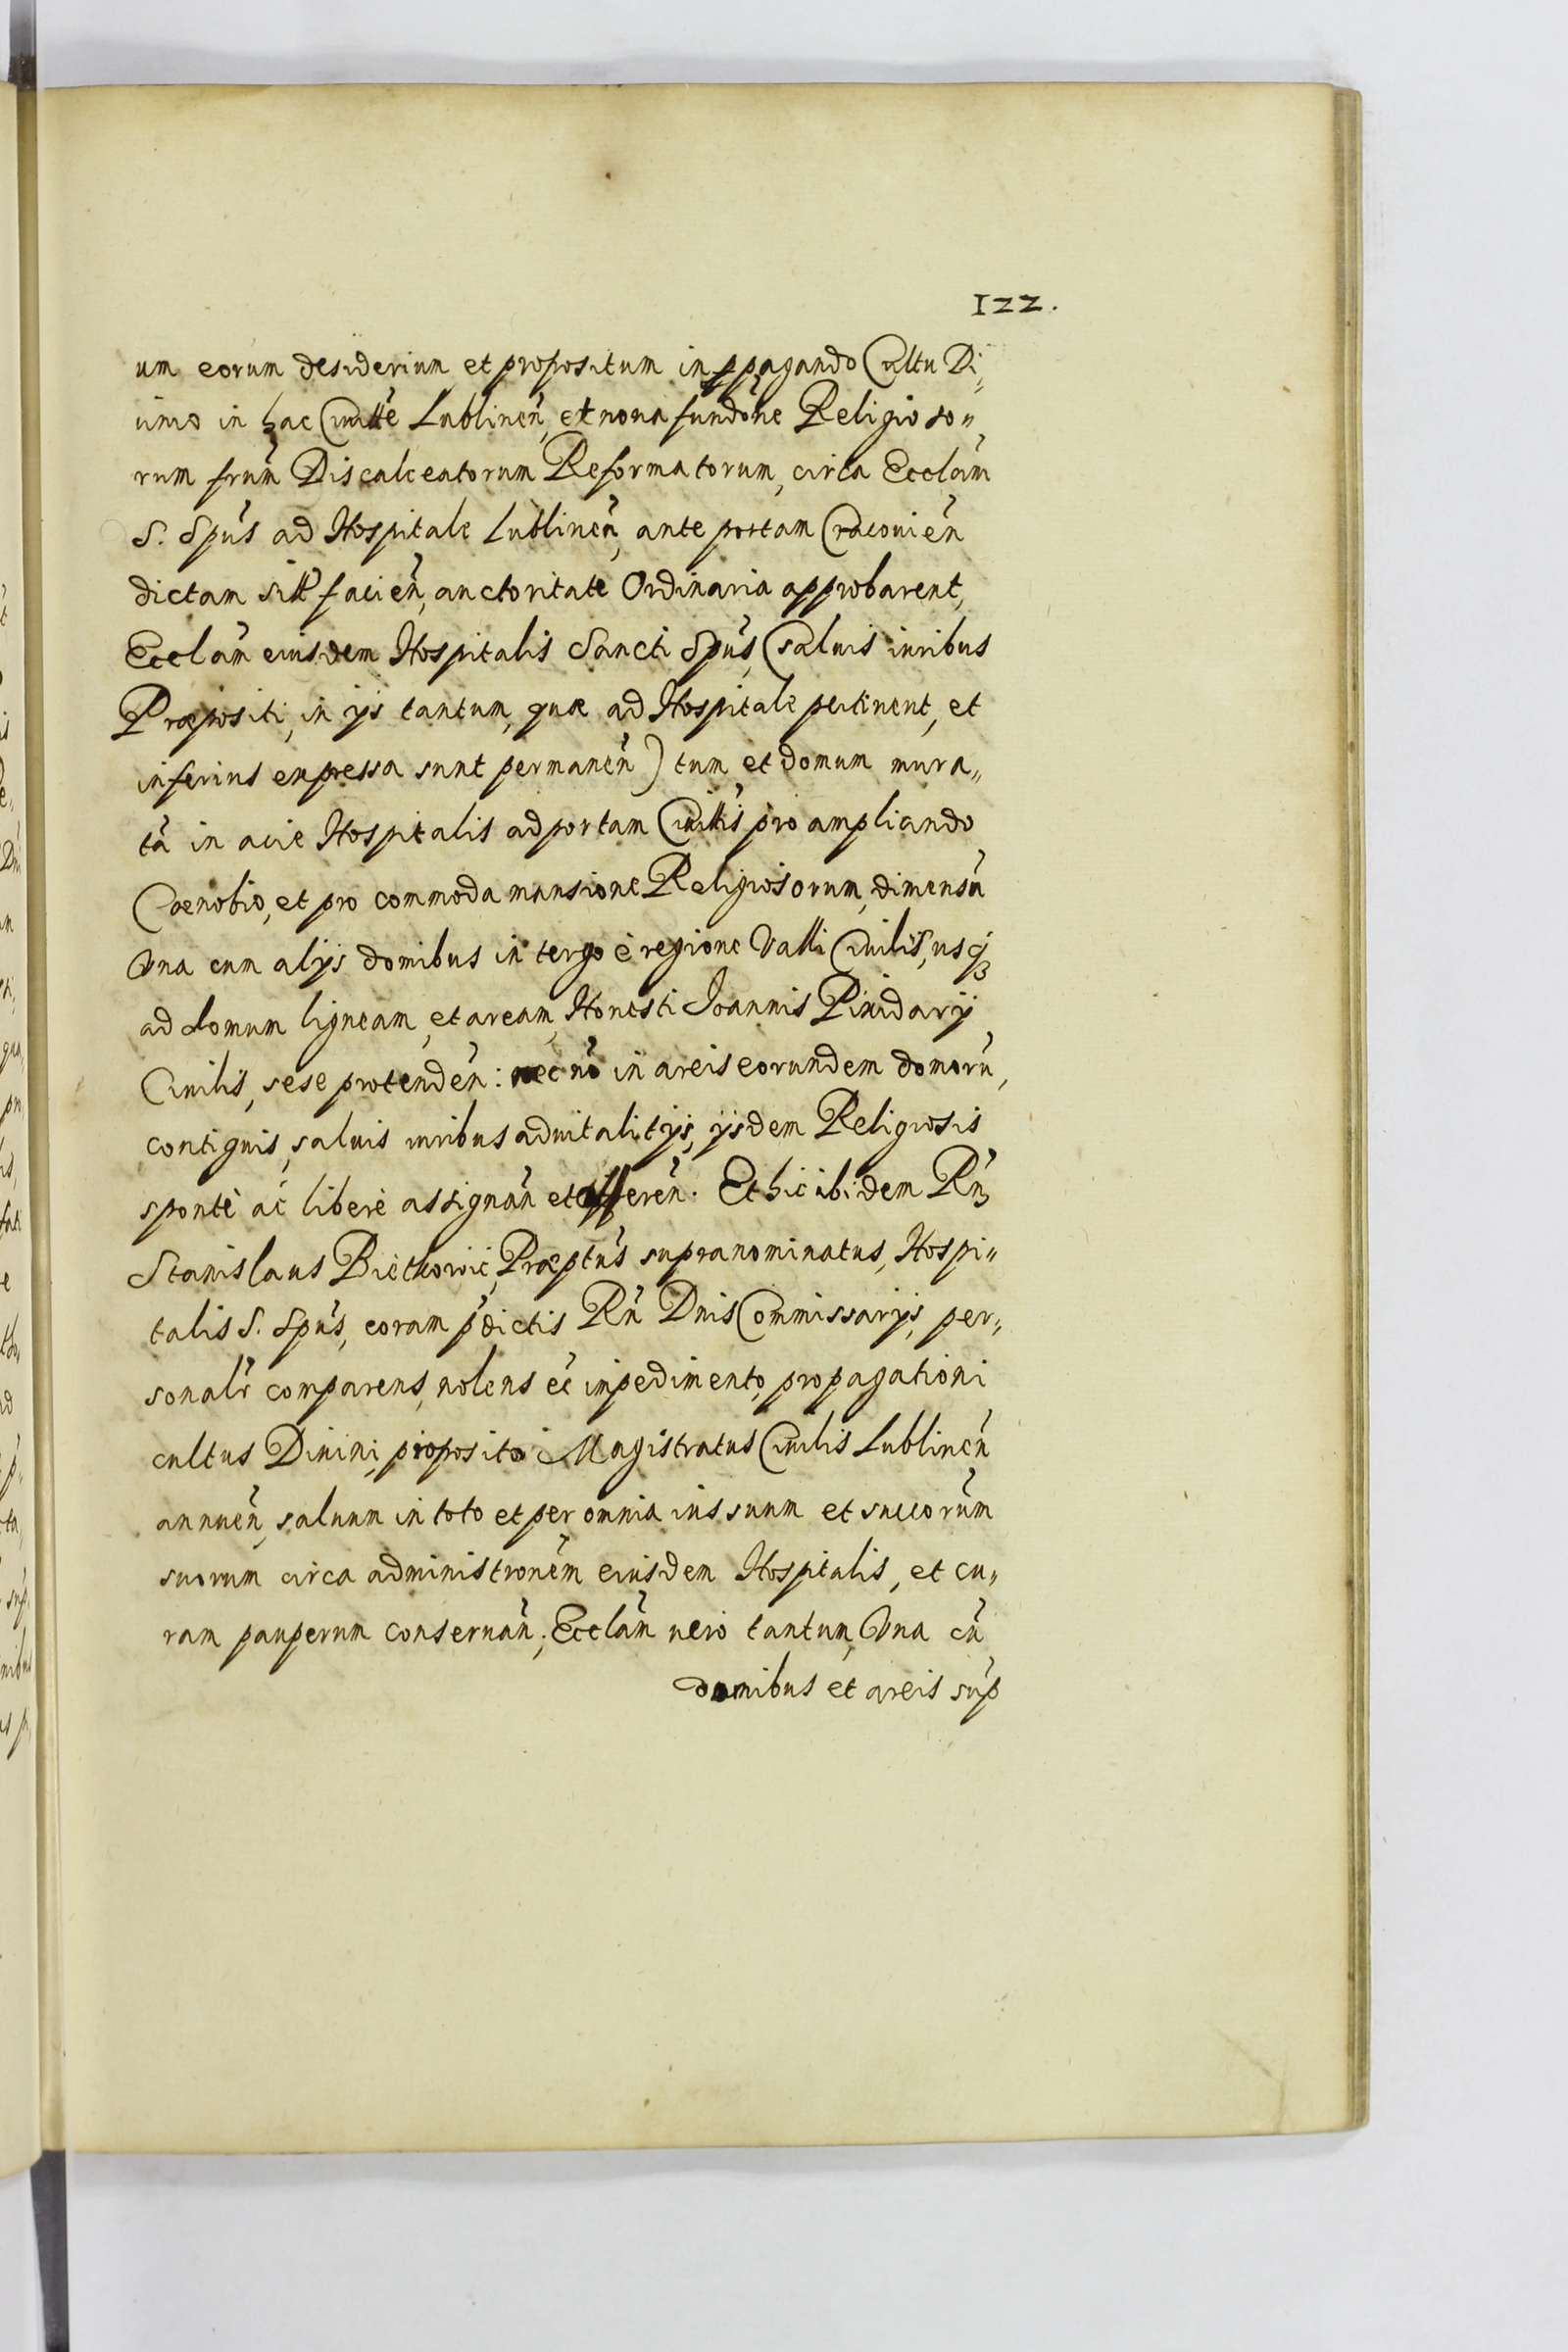 122.
um eorum desiderium et propositum in ppagando Cultu Di„
uino in hac Ciuitte Lublineñ, et noua fundone Religioso„
rum frum Discalceatorum Reformatorum, circa Ecclam
S. Spus ad Hospitale Lublineñ, ante portam Cracouieñ
dictam sitt facieñ, auctoritate Ordinaria approbarent,
Ecclam eiusdem Hospitalis Sancti Spus, (saluis iuribus
Præpositi, in ijs tantum, quæ ad Hospitale pertinent, et
inferius expressa sunt permaneñ) tum et domum mura„
tã in acie Hospitalis ad portam Ciuittis pro ampliando
Cœnobio, et pro commoda mansione Religiosorum, dimensã
Vna cum alijs domibus in tergo è regione Valli Ciuilis, usq3
ad domum ligneam, et aream, Honesti Joannis
Ciuilis, sese protendeñ: nec nõ in areis eorundem domorũ,
contiguis, saluis iuribus aduitalitijs, ijsdem Religiosis
sponte ac liberè assignañ et offereñ. Et hic ibidem Rñ3
Stanislaus Præptus supranominatus, Hospi„
talis S. Spus, coram pdictis Rñ Dnis Commissarijs, per„
sonalr comparens, nolens eẽ inpedimento, propagationi
cultus Diuini, proposito Magistratus Ciuilis Lublineñ
annueñ, saluum in toto et per omnia ius suum et succorum
suorum circa administronem eiusdem Hospitalis, et cu„
ram pauperum conseruañ; Ecclam uero tantum, Vna cũ
domibus et areis sup